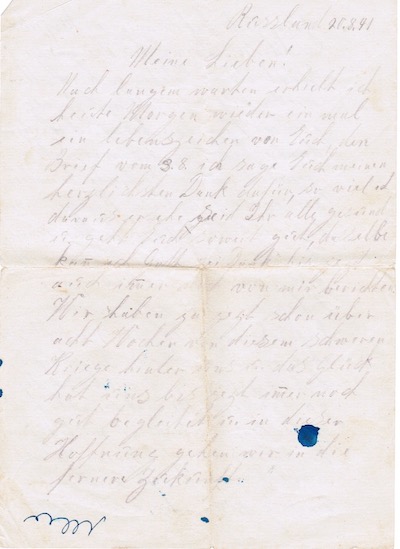 Russland 20.8.41
Meine Lieben!
Nach langem warten erhielt ich
heute Morgen wieder ein mal
ein lebenszeichen von Euch, den
Brief vom 3.8. ich sage Euch meinen
herzlichsten Dank dafür, so viel ich
daraus ersehe seid Ihr alle gesund
u. geht soweit gut, dasselbe
kann ich Gott
auch immer von mir berichten
Wir haben ja jetzt schon über
acht Wochen von diesem schweren
Kriege hinter uns u. das glück
hat uns bis jetzt immer noch
gut begleitet u. in dieser
Hoffnung gehen wir in die
fernere Zukunft